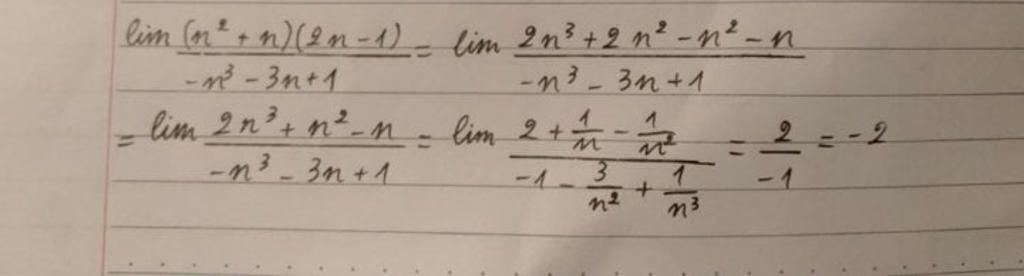 lim (n² + n)(2n - 1) / (-n³ - 3n + 1) = lim (2n³ + 2n² - n² - n) / (-n³ - 3n + 1)
= lim (2n³ + n² - n) / (-n³ - 3n + 1) = lim (2 + 1/n - 1/n²) / (-1 - 3/n² + 1/n³) = 2/-1 = -2